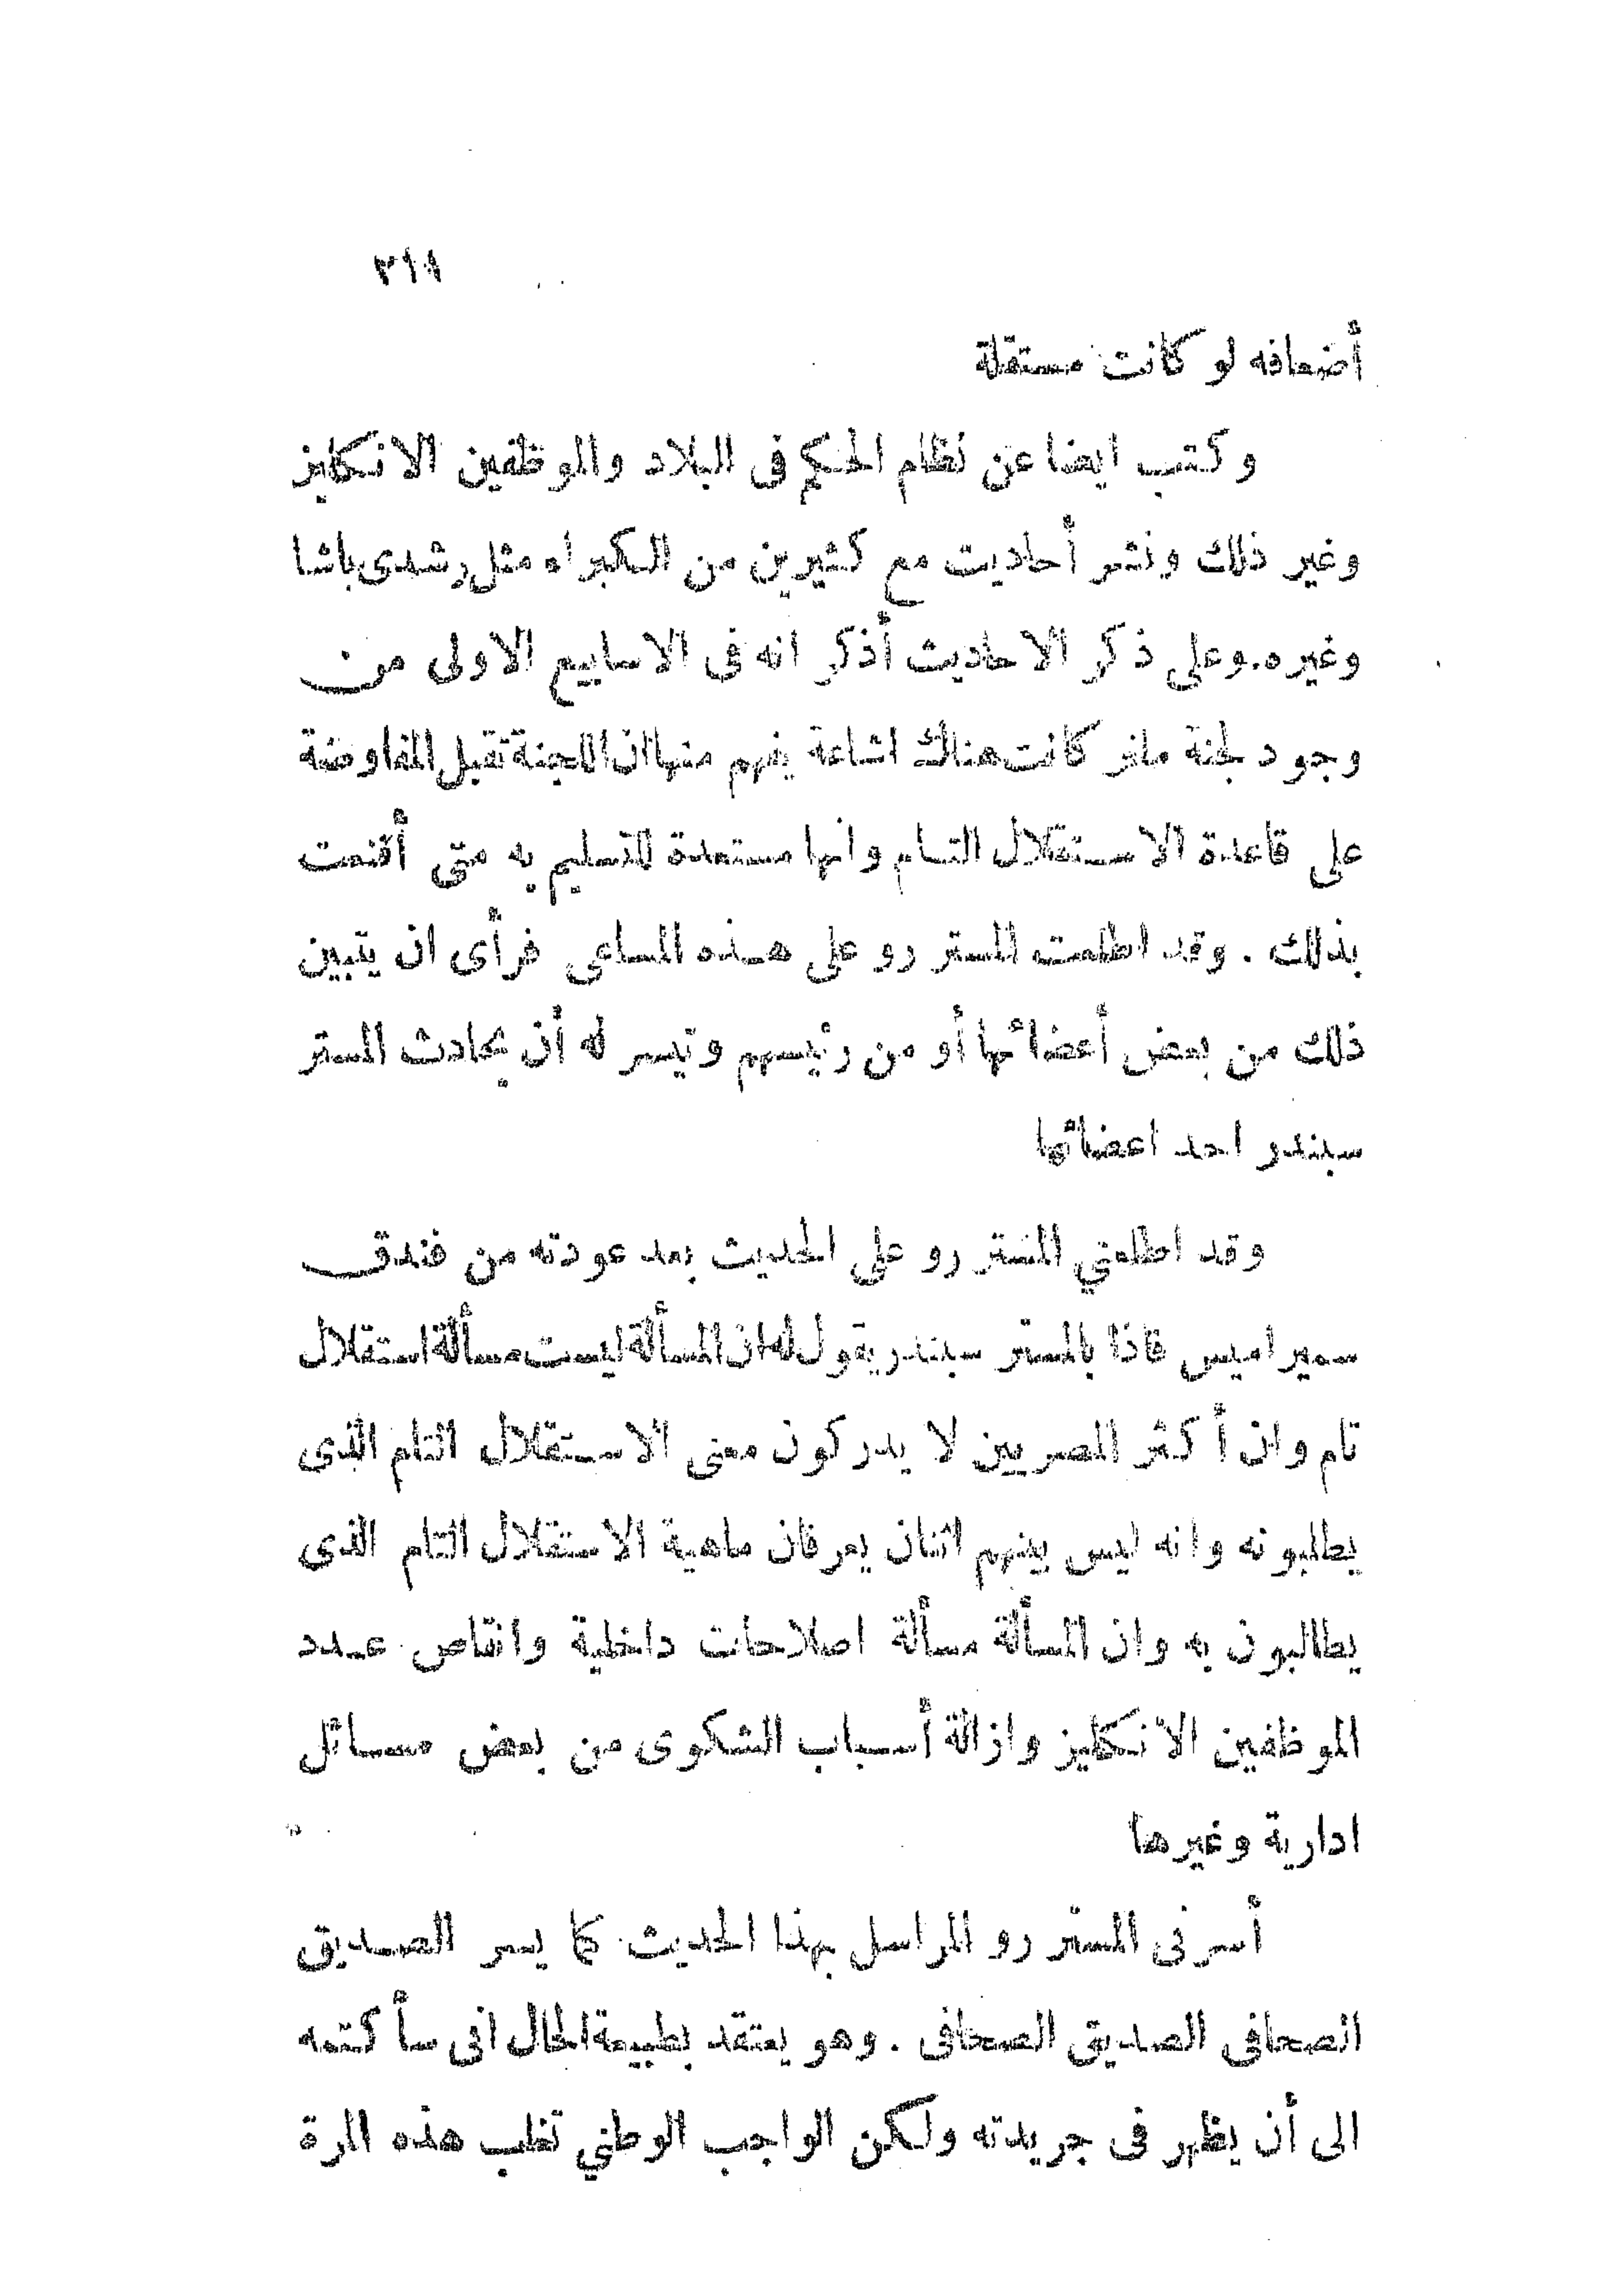 أضعافه لو كانت مستقلة
وكتب ايضا عن نظام الحكم فى البلاد والموظفين الانكليز
وغير ذلك ونشر أحاديث مع كثيرين من الكبراء مثل رشدى باشا
وغيره. وعلى ذكر الاحاديث أذكر انه فى الاسابيع الاولى من
وجود لجنة ملنر كانت هناك اشاعة يفهم منها ان اللجنة تقبل المفاوضة
على قاعدة الاستقلال التام وانها مستعدة للتسليم به متى أقنعت
بذلك . وقد اطلعت المستر رو على هذه المساعى فرأى ان يتبين
ذلك من بعض أعضائها أو من رئيسهم وتيسر له أن يحادث المستر
سبندر احد اعضائها
وقد اطلعني المستر رو على الحديث بعد عودته من فندق
سميراميس فاذا بالمستر سبندر يقول له ان المسألة ليست مسألة استقلال
تام وان أكثر المصريين لا يدركون معنى الاستقلال التام الذى
يطلبونه وانه ليس بينهم اثنان يعرفان ماهية الاستقلال التام الذى
يطالبون به وان المسألة مسألة اصلاحات داخلية وانقاص عدد
الموظفين الانكليز وازالة أسباب الشكوى من بعض مسائل
ادارية وغيرها
أسرنى المستر رو المراسل بهذا الحديث كما يسر الصديق
الصحافى الصديق الصحافى . وهو يعتقد بطبيعة الحال انى سأكتمه
الى أن يظهر فى جريدته ولكن الواجب الوطني تغلب هذه المرة